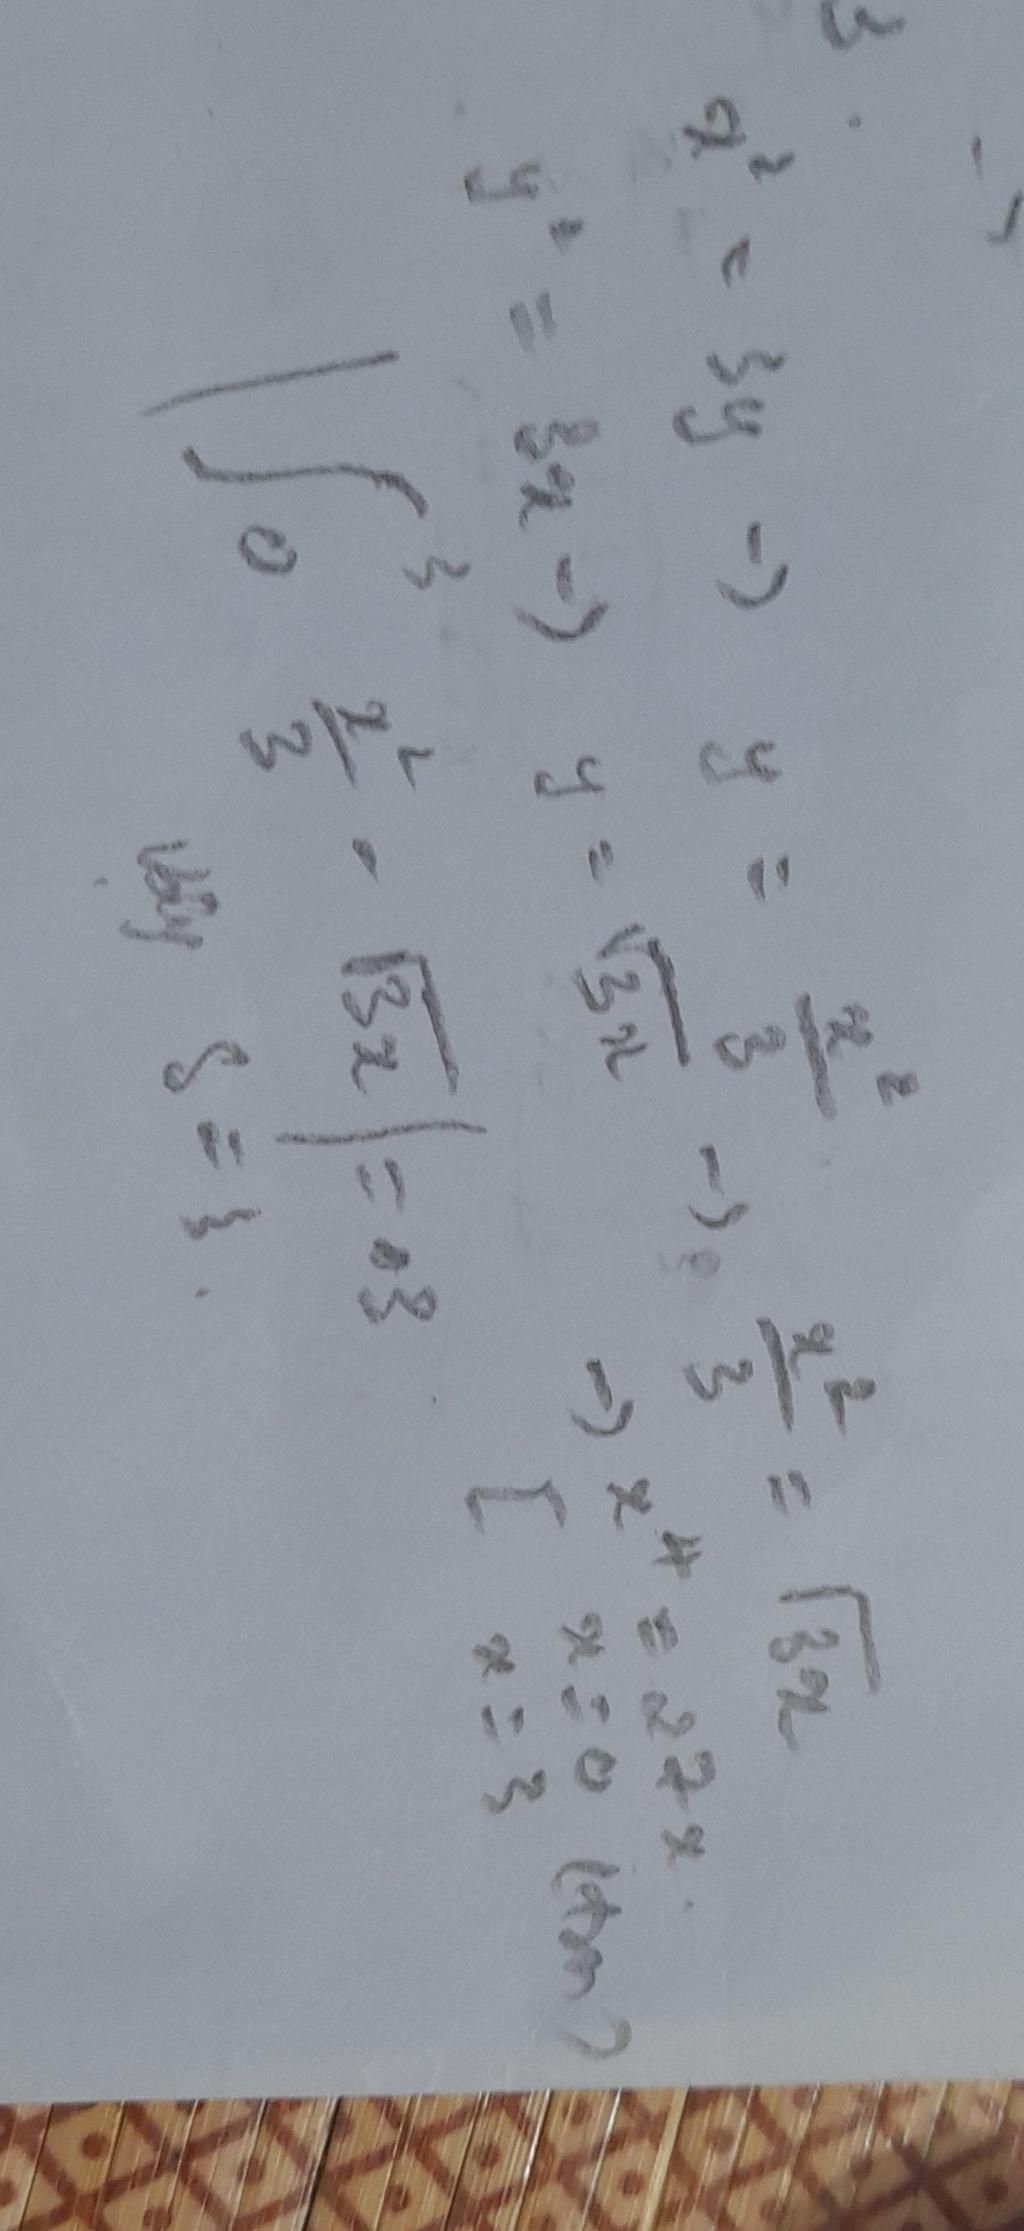 3.
x² = 3y → y = x²/3 → x²/3 = √3x
y² = 3x → y = √3x → x⁴ = 27x
[ x = 0 (tm)
x = 3
|∫₀³ x²/3 - √3x| = 3
Vậy S = 3.